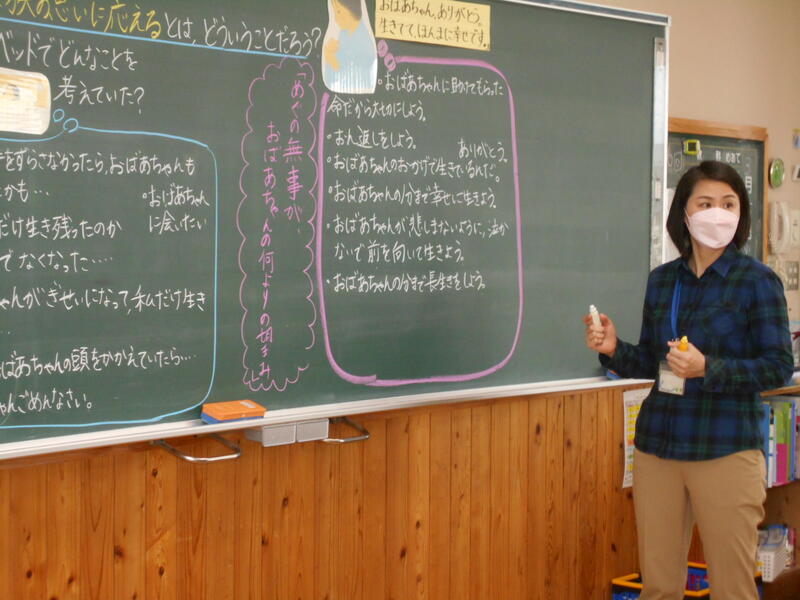 思いに応えるとは、どういうことだろう?
ベッドでどんなことを
考えていた?
をずらさなかったら、おばあちゃんも
かも…
・おばあちゃん
に会いたい
だけ生き残ったのか
でなくなった….
ゃんがぎせいになって、私だけ生き
ばあちゃんの頭をかかえていたら…
ゃんごめんなさい。
「めぐの無事が、
おばあちゃんの何よりの望み」
おばあちゃん、ありがとう。
生きてて、ほんまに幸せです。
・おばあちゃんに助けてもらった
命だから大切にしよう。
・おん返しをしよう。
ありがとう。
・おばあちゃんのおかげで生きているんだ。
・おばあちゃんの分まで幸せに生きよう。
・おばあちゃんが悲しまないように、泣か
ないで前を向いて生きよう。
・おばあちゃんの分まで長生きをしよう。